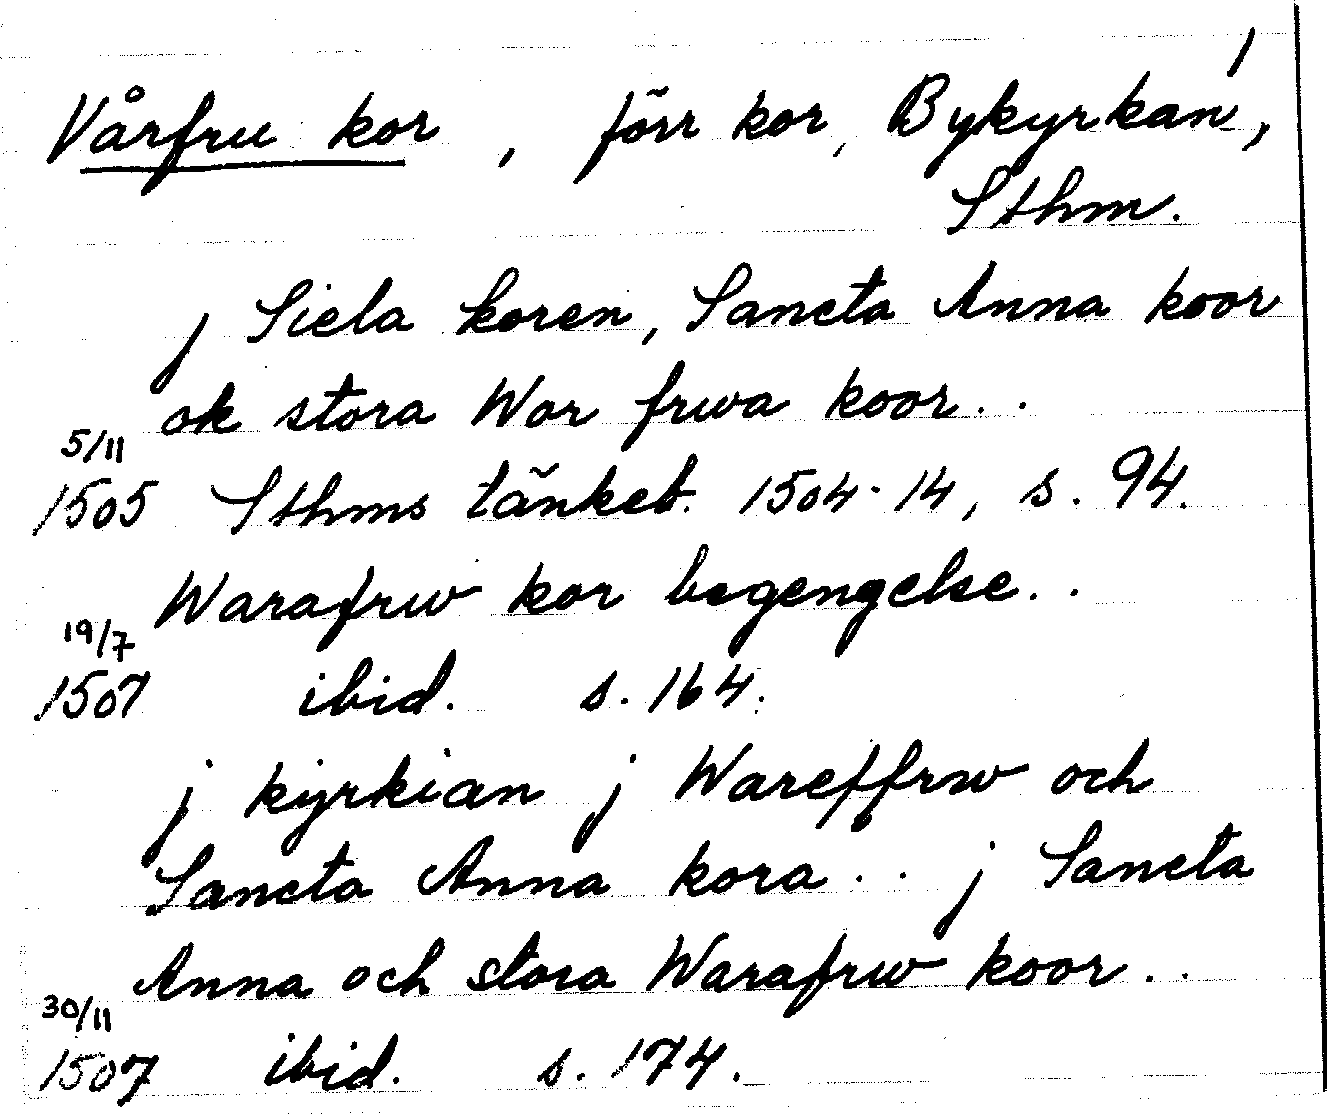 1
Vårfru kor, förr kor, Bykyrkan,
Sthm.
j Siela koren, Sancta Anna koor
ok stora Wor frwa koor..
5/11
1505 Sthms tänkeb. 1504-14, s. 94.
Warafrw kor begengelse..
19/7
1507 ibid. s. 164.
j kyrkian j Wareffrw och
Sancta Anna kora.. j Sancta
Anna och stora Warafrw koor..
30/11
1507 ibid. s. 174.